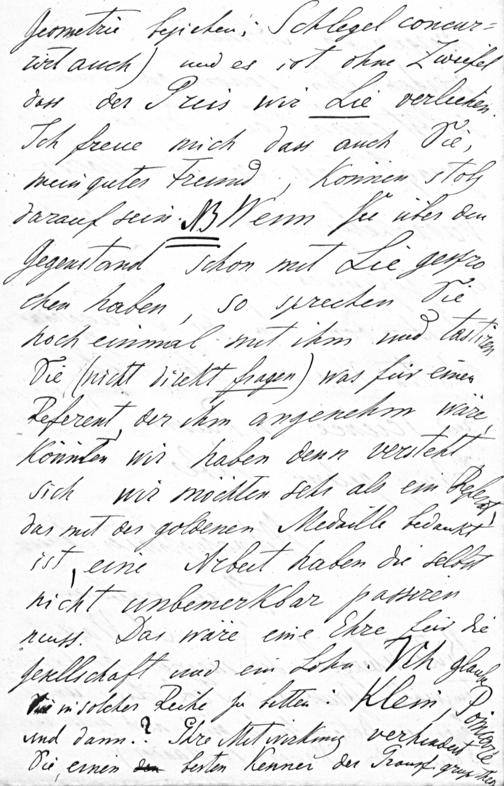 Geometrie beziehen; Schlegel concur-
rirt auch) und es ist ohne Zweifel
dass der Preis wir Lie verliehen.
Ich freue mich dass auch Sie,
mein guter Freund, können stolz
darauf sein. NB Wenn Sie über den
Gegenstand schon mit Lie gespro
chen haben, so sprechen Sie
noch einmal mit ihm und tastiren
Sie (nicht direkt fragen) was für einen
Referent, der ihm angenehm wäre,
könnten wir haben denn versteht
sich wir möchten sehr als ein Referat,
das mit der goldenen Medaille bedankt
ist, eine Arbeit haben die selbst
nicht unbemerkbar passiren
muss. Das wäre eine Ehre für die
Gesellschaft und ein Lohn. Ich glaube
in solcher Reihe zu bitten: Klein, Poincaré
und dann? Ihre Mitwirkung verhindert
Sie, einen besten Kenner der Transf.